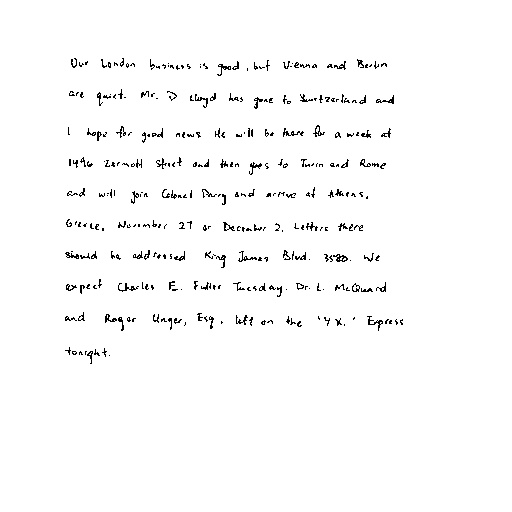 Our London business is good, but Vienna and Berlin
are quiet. Mr. D Lloyd has gone to Switzerland and
I hope for good news. He will be there for a week at
1496 Zermott Street and then goes to Turin and Rome
and will join Colonel Parry and arrive at Athens,
Greece, November 27 or December 2. Letters there
should be addressed King James Blvd. 3580. We
expect Charles E. Fuller Tuesday. Dr. L. McQuard
and Roger Unger, Esq. left on the "Y X." Express
tonight.